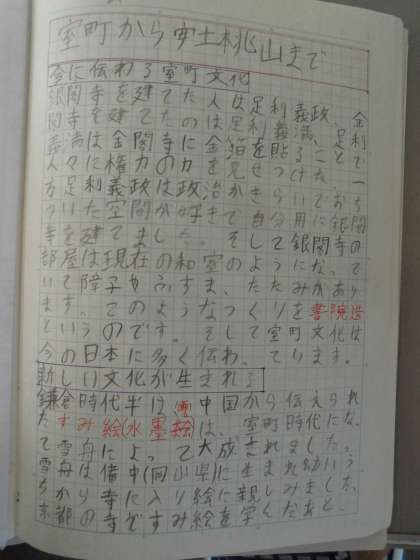 室町から安土桃山まで
今に伝わる室町文化
銀閣寺を建てた人は足利義政、金
閣寺を建てたのは足利義満、足利
義満は金閣寺に金箔を貼ることで
人々に権力の力を見せつけた。一
方足利義政は政治がきらいでおち
ついた空間が好きで自分用に銀閣
寺を建てました。そして銀閣寺の
部屋は現在の和室のようになって
いて障子やふすま、たたみがあり
ます。このようなつくりを書院造
というのです。そして室町文化は
今の日本に多く伝わっています。
新しい文化が生まれる
鎌倉時代半け 中国から伝えられ
たすみ絵(水墨絵)は、室町時代にな
って雪舟によって大成されました。
雪舟は備中(岡山県)に生まれ幼いう
ちから寺に入り絵に親しみました。
京都の寺ですみ絵を学んだあと、